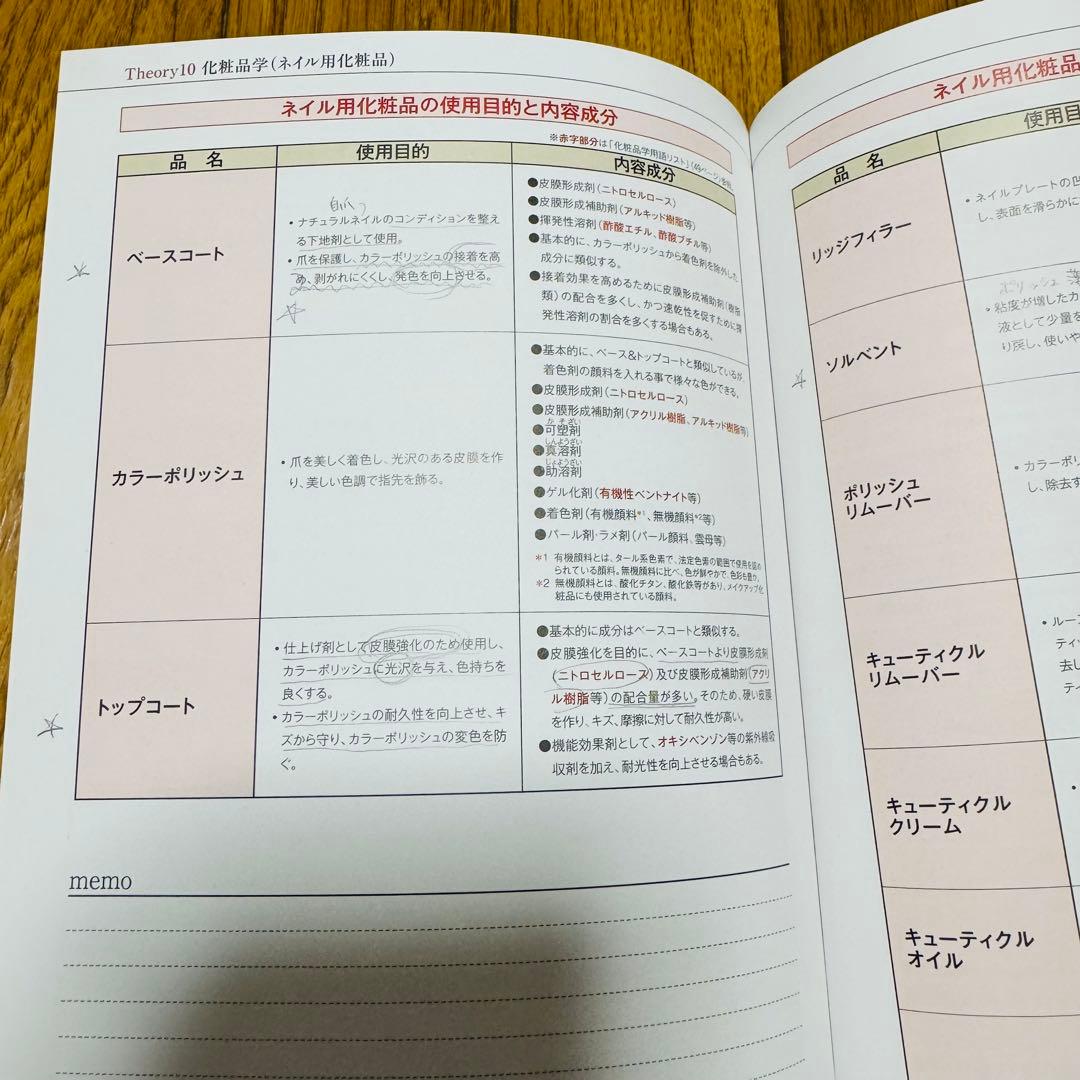 Theory10 化粧品学(ネイル用化粧品)
ネイル用化粧品の使用目的と内容成分
※赤字部分は「化粧品学用語リスト」(49ページ)参照
品 名
使用目的
内容成分
ベースコート
自爪
・ナチュラルネイルのコンディションを整え
る下地剤として使用。
・爪を保護し、カラーポリッシュの接着を高
め、剥がれにくくし、発色を向上させる。
●皮膜形成剤(ニトロセルロース)
●皮膜形成補助剤(アルキッド樹脂等)
●揮発性溶剤(酢酸エチル、酢酸ブチル等)
●基本的に、カラーポリッシュから着色剤を除外した
成分に類似する。
●接着効果を高めるために皮膜形成補助剤(樹脂
類)の配合を多くし、かつ速乾性を促すために揮
発性溶剤の割合を多くする場合もある。
カラーポリッシュ
・爪を美しく着色し、光沢のある皮膜を作
り、美しい色調で指先を飾る。
●基本的に、ベース&トップコートと類似しているが、
着色剤の顔料を入れる事で様々な色ができる。
●皮膜形成剤(ニトロセルロース)
●皮膜形成補助剤(アクリル樹脂、アルキッド樹脂等)
かそざい
●可塑剤
しんようざい
●真溶剤
じょようざい
●助溶剤
●ゲル化剤(有機性ベントナイト等)
●着色剤(有機顔料*1、無機顔料*2等)
●パール剤・ラメ剤(パール顔料、雲母等)
*1 有機顔料とは、タール系色素で、法定色素の範囲で使用を認め
られている顔料。無機顔料に比べ、色が鮮やかで、色彩も豊か。
*2 無機顔料とは、酸化チタン、酸化鉄等があり、メイクアップ化
粧品にも使用されている顔料。
トップコート
・仕上げ剤として皮膜強化のため使用し、
カラーポリッシュに光沢を与え、色持ちを
良くする。
・カラーポリッシュの耐久性を向上させ、キ
ズから守り、カラーポリッシュの変色を防
ぐ。
●基本的に成分はベースコートと類似する。
●皮膜強化を目的に、ベースコートより皮膜形成剤
(ニトロセルロース)及び皮膜形成補助剤(アクリ
ル樹脂等)の配合量が多い。そのため、硬い皮膜
を作り、キズ、摩擦に対して耐久性が高い。
●機能効果剤として、オキシベンゾン等の紫外線吸
収剤を加え、耐光性を向上させる場合もある。
memo
ネイル用化粧品
品 名
使用目
リッジフィラー
・ネイルプレートの凹
し、表面を滑らかに
ソルベント
ポリッシュ
・粘度が増したカ
液として少量を
り戻し、使いや
ポリッシュ
リムーバー
・カラーポリ
し、除去す
キューティクル
リムーバー
・ルー
ティ
去し
ティ
キューティクル
クリーム
キューティクル
オイル